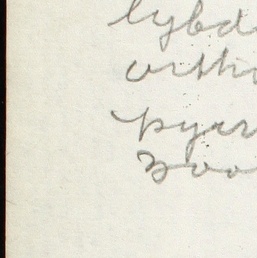 lybd
ortho
pyrr
Zoo